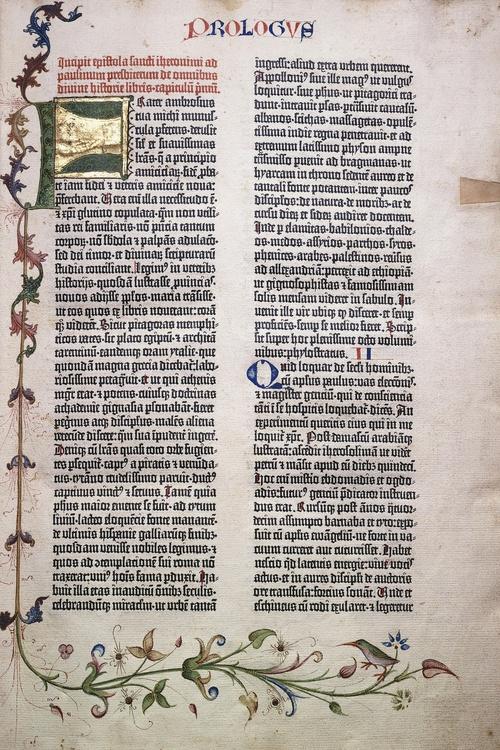 PROLOGVS
Incipit epistola sancti iheronimi ad
paulinum presbiterum de omnibus
divine historie libris. capitulū primū.
Frater ambrosius
tua michi munus-
cula pferens. detulit
sil' et suavissimas
lr̄as. q̄ a principio
amiciciaꝝ. fidē pba-
te iam fidei et veteris amicicie nova
pferebant. Vera eni illa necessitudo ē
et xp̄i glutino copulata. qm̄ non vtili-
tas rei familiaris. nō pn̄cia tantum
corpoꝝ. nō sbdola et palpans adulatō.
sed dei timor. et divinaꝝ scripturarū
studia conciliant. Legim in veterib
historijs. quosdā lustrasse puincias.
novos adijsse pplos. maria trāsisse.
ut eos quos ex libris noverant. corā
q̄ viderēt. Sicut pitagoras memphi-
ticos vates. sic plato egiptū. et architā
tarentinū. eandemq oram ytalie. que
quondā magna grecia dicebat. labo-
riosissime peragravit. et ut qui athenis
mgr erat. et potens. cuiusq doctrinas
achademie gignasia psonabāt. fieret
peginus atq discipulus. malēs aliena
verecunde discere. q̄m sua īpudent ingere.
Deniq cū lr̄as quasi toto orbe fugien-
tes psequit. capt a piratis et venūda-
tus. tyranno crudelissimo paruit. duct
captivus vinct et servus. Tamē quia
phus maior emente se fuit. ad tytum
livium. lacteo eloquētie fonte manantē.
de vltimis hispanie galliarūq finib.
quosdam venisse nobiles legimus. et
quos ad contemplationē sui roma nō
traxerat. vni hoīs fama pduxit. Ha-
buit illa etas inauditū omib seclis.
celebrandūq miraclm. ut urbē tantā
ingressi. aliud extra urbem quererent.
Apolloni sive ille mag ut vulgus
loquitur. sive phus. ut pitagorici tra-
dunt. intravit psas. ptrāsivit caucasū.
albanos. scithas. massagetas. opulē-
tissima indie regna penetravit. et ad
extremum latissimo physon ampne
trāsmisso puenit ad bragmanas. ut
hyarcam in throno sedetē aureo et de
tantali fonte potantem. inter paucos
discipulos. de natura. de moribz ac de
cursu dierū et siderū audiret docentem.
Inde p elamitas. babilonios. chalde-
os. medos. assyrios. parthos. syros.
phenices. arabes. palestinos. reversus
ad allexandriā. perrexit ad ethiopiā.
ut gignosophistas et famosissimam
solis mensam videret in sabulo. In-
venit ille vir ubiq qd disceret. et semp
proficiēs. semp se melior fieret. Scrip-
sit super hoc plenissime octo volumi-
nibus. phylostratus. II
Quid loquar de seculi hominibz.
cū aptus paulus. vas electōnis.
et magister gentiū. qui de consciencia
tāti ī se hospitis loquebat. dicēs. An
experimentū queritis eius qui in me
loquit xp̄c. Post damascū arabiāq
lustratā. ascēdit iherosolimā ut videt
petrū et māsit apud eū diebz quindeci.
Hoc enī mīsterio ebdomadis et ogdo-
adis. futur gentiū p̄dicator instruen-
dus erat. Rursūq post ānos q̄tuor-
decim assumpto barnaba et tyto. expo-
suit cū aptis ewāgeliū. ne forte in va-
cuum curreret aut cucurrisset. Habet
nescio qd latentis energie. vive vocis
actus. et in aures discipli de auctoris
ore transfusa. forcius sonat. Unde et
eschineus cū rodi exularet. et legeretur